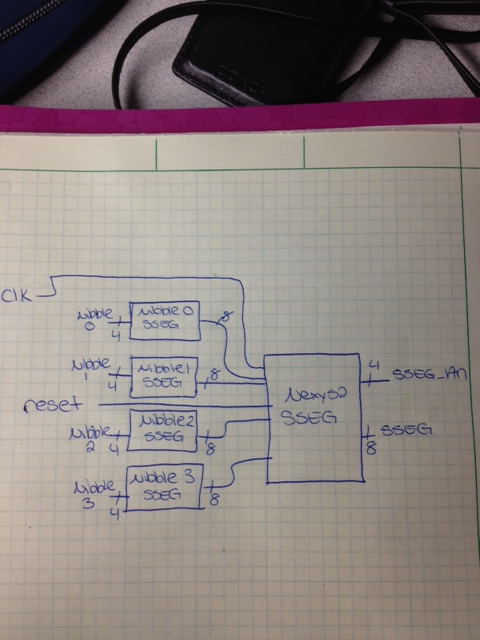 COACH
Clk
Nibble
0
4
Nibble 0
SSEG
8
Nibble
1
4
Nibble 1
SSEG
8
reset
Nibble
2
4
Nibble 2
SSEG
8
Nibble
3
4
Nibble 3
SSEG
8
Nexys2
SSEG
4
SSEG_AN
SSEG
8